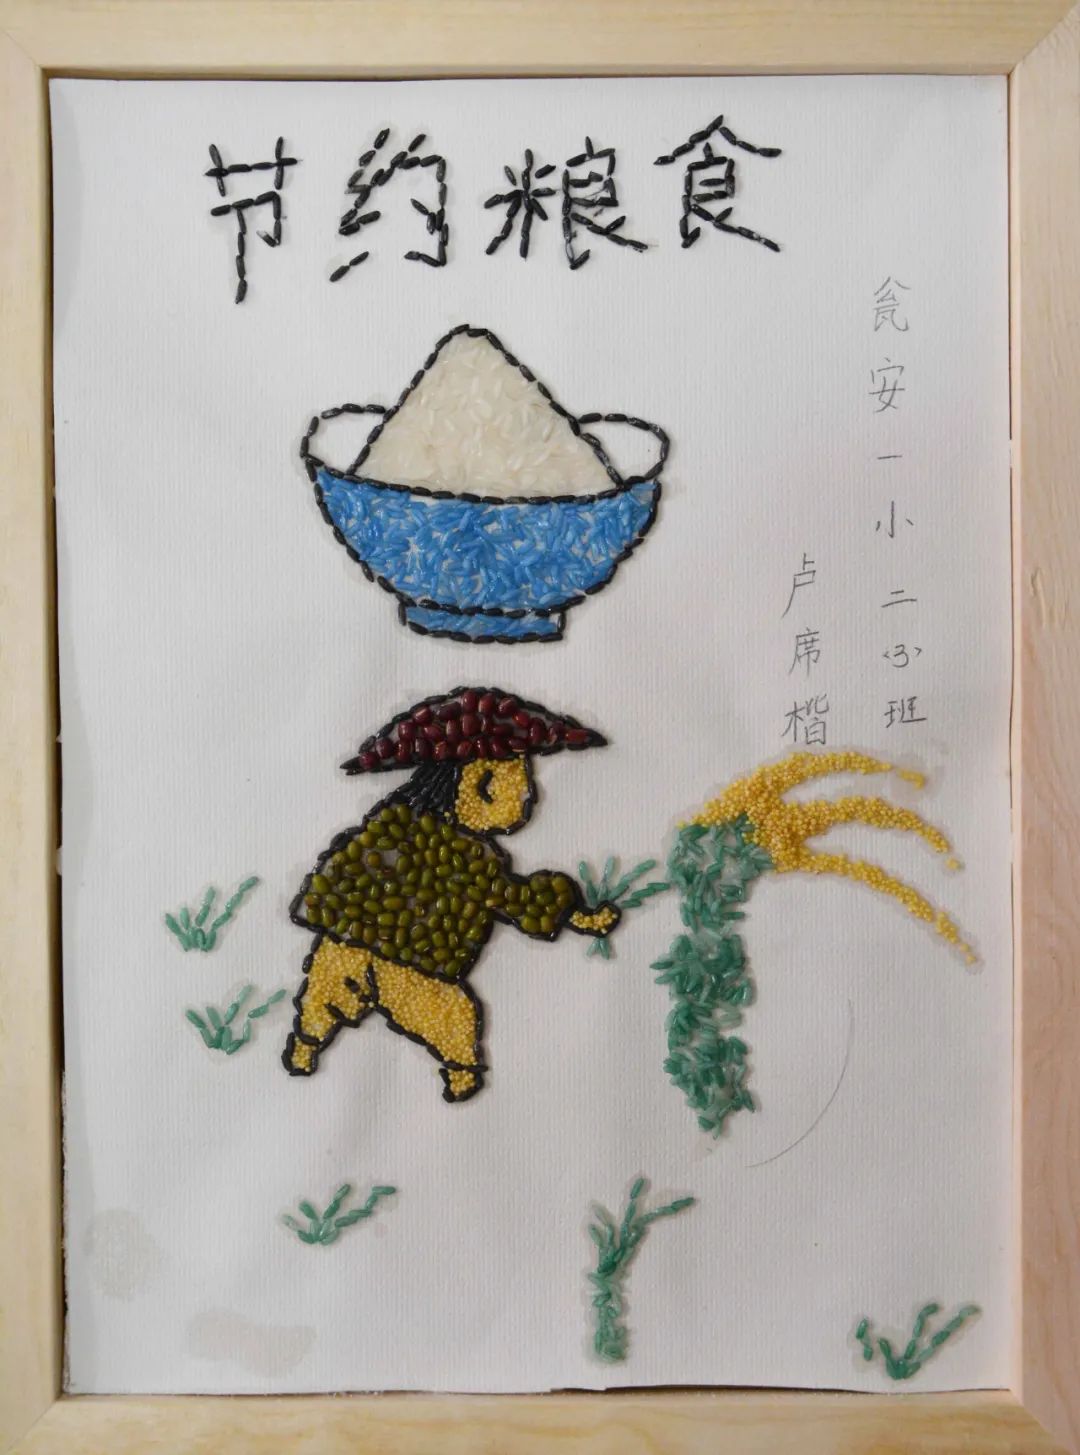 节约粮食
瓮安一小二(3)班
卢席楷